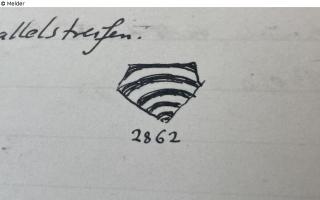 © Melder
allelstreifen.
2862